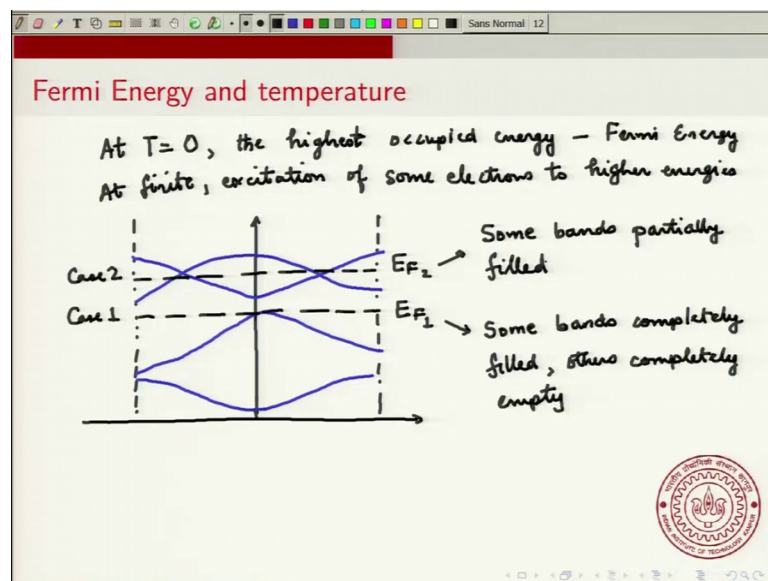 Sans Normal 12
Fermi Energy and temperature
At T=0, the highest occupied energy – Fermi Energy
At finite, excitation of some electrons to higher energies
Case 2
E_F2 → Some bands partially
filled
Case 1
E_F1 → Some bands completely
filled, others completely
empty
भारतीय प्रौद्योगिकी संस्थान कानपुर
INDIAN INSTITUTE OF TECHNOLOGY KANPUR